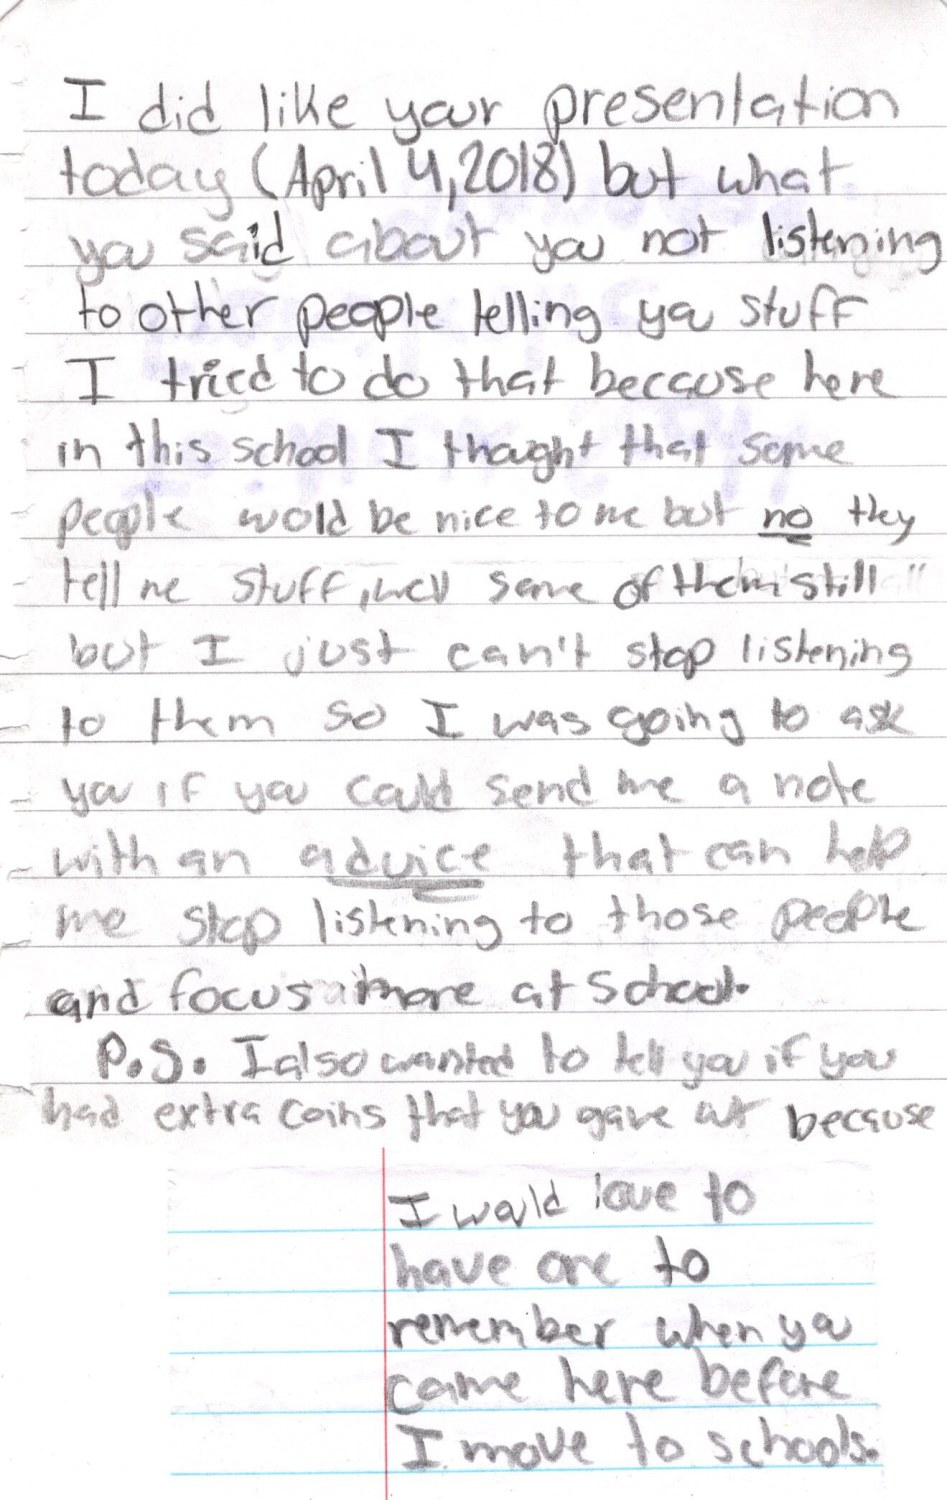 I did like your presentation
today (April 4, 2018) but what
you said about you not listening
to other people telling you stuff
I tried to do that beccause here
in this school I thought that some
people wolld be nice to me but no they
tell me stuff, well some of them still
but I just can't stop listening
to them so I was going to ask
you if you could send me a note
with an advice that can help
me stop listening to those people
and focus more at School.
P.S. I also wanted to tell you if you
had extra coins that you gave out because
I would love to
have one to
remember when you
came here before
I move to schools.